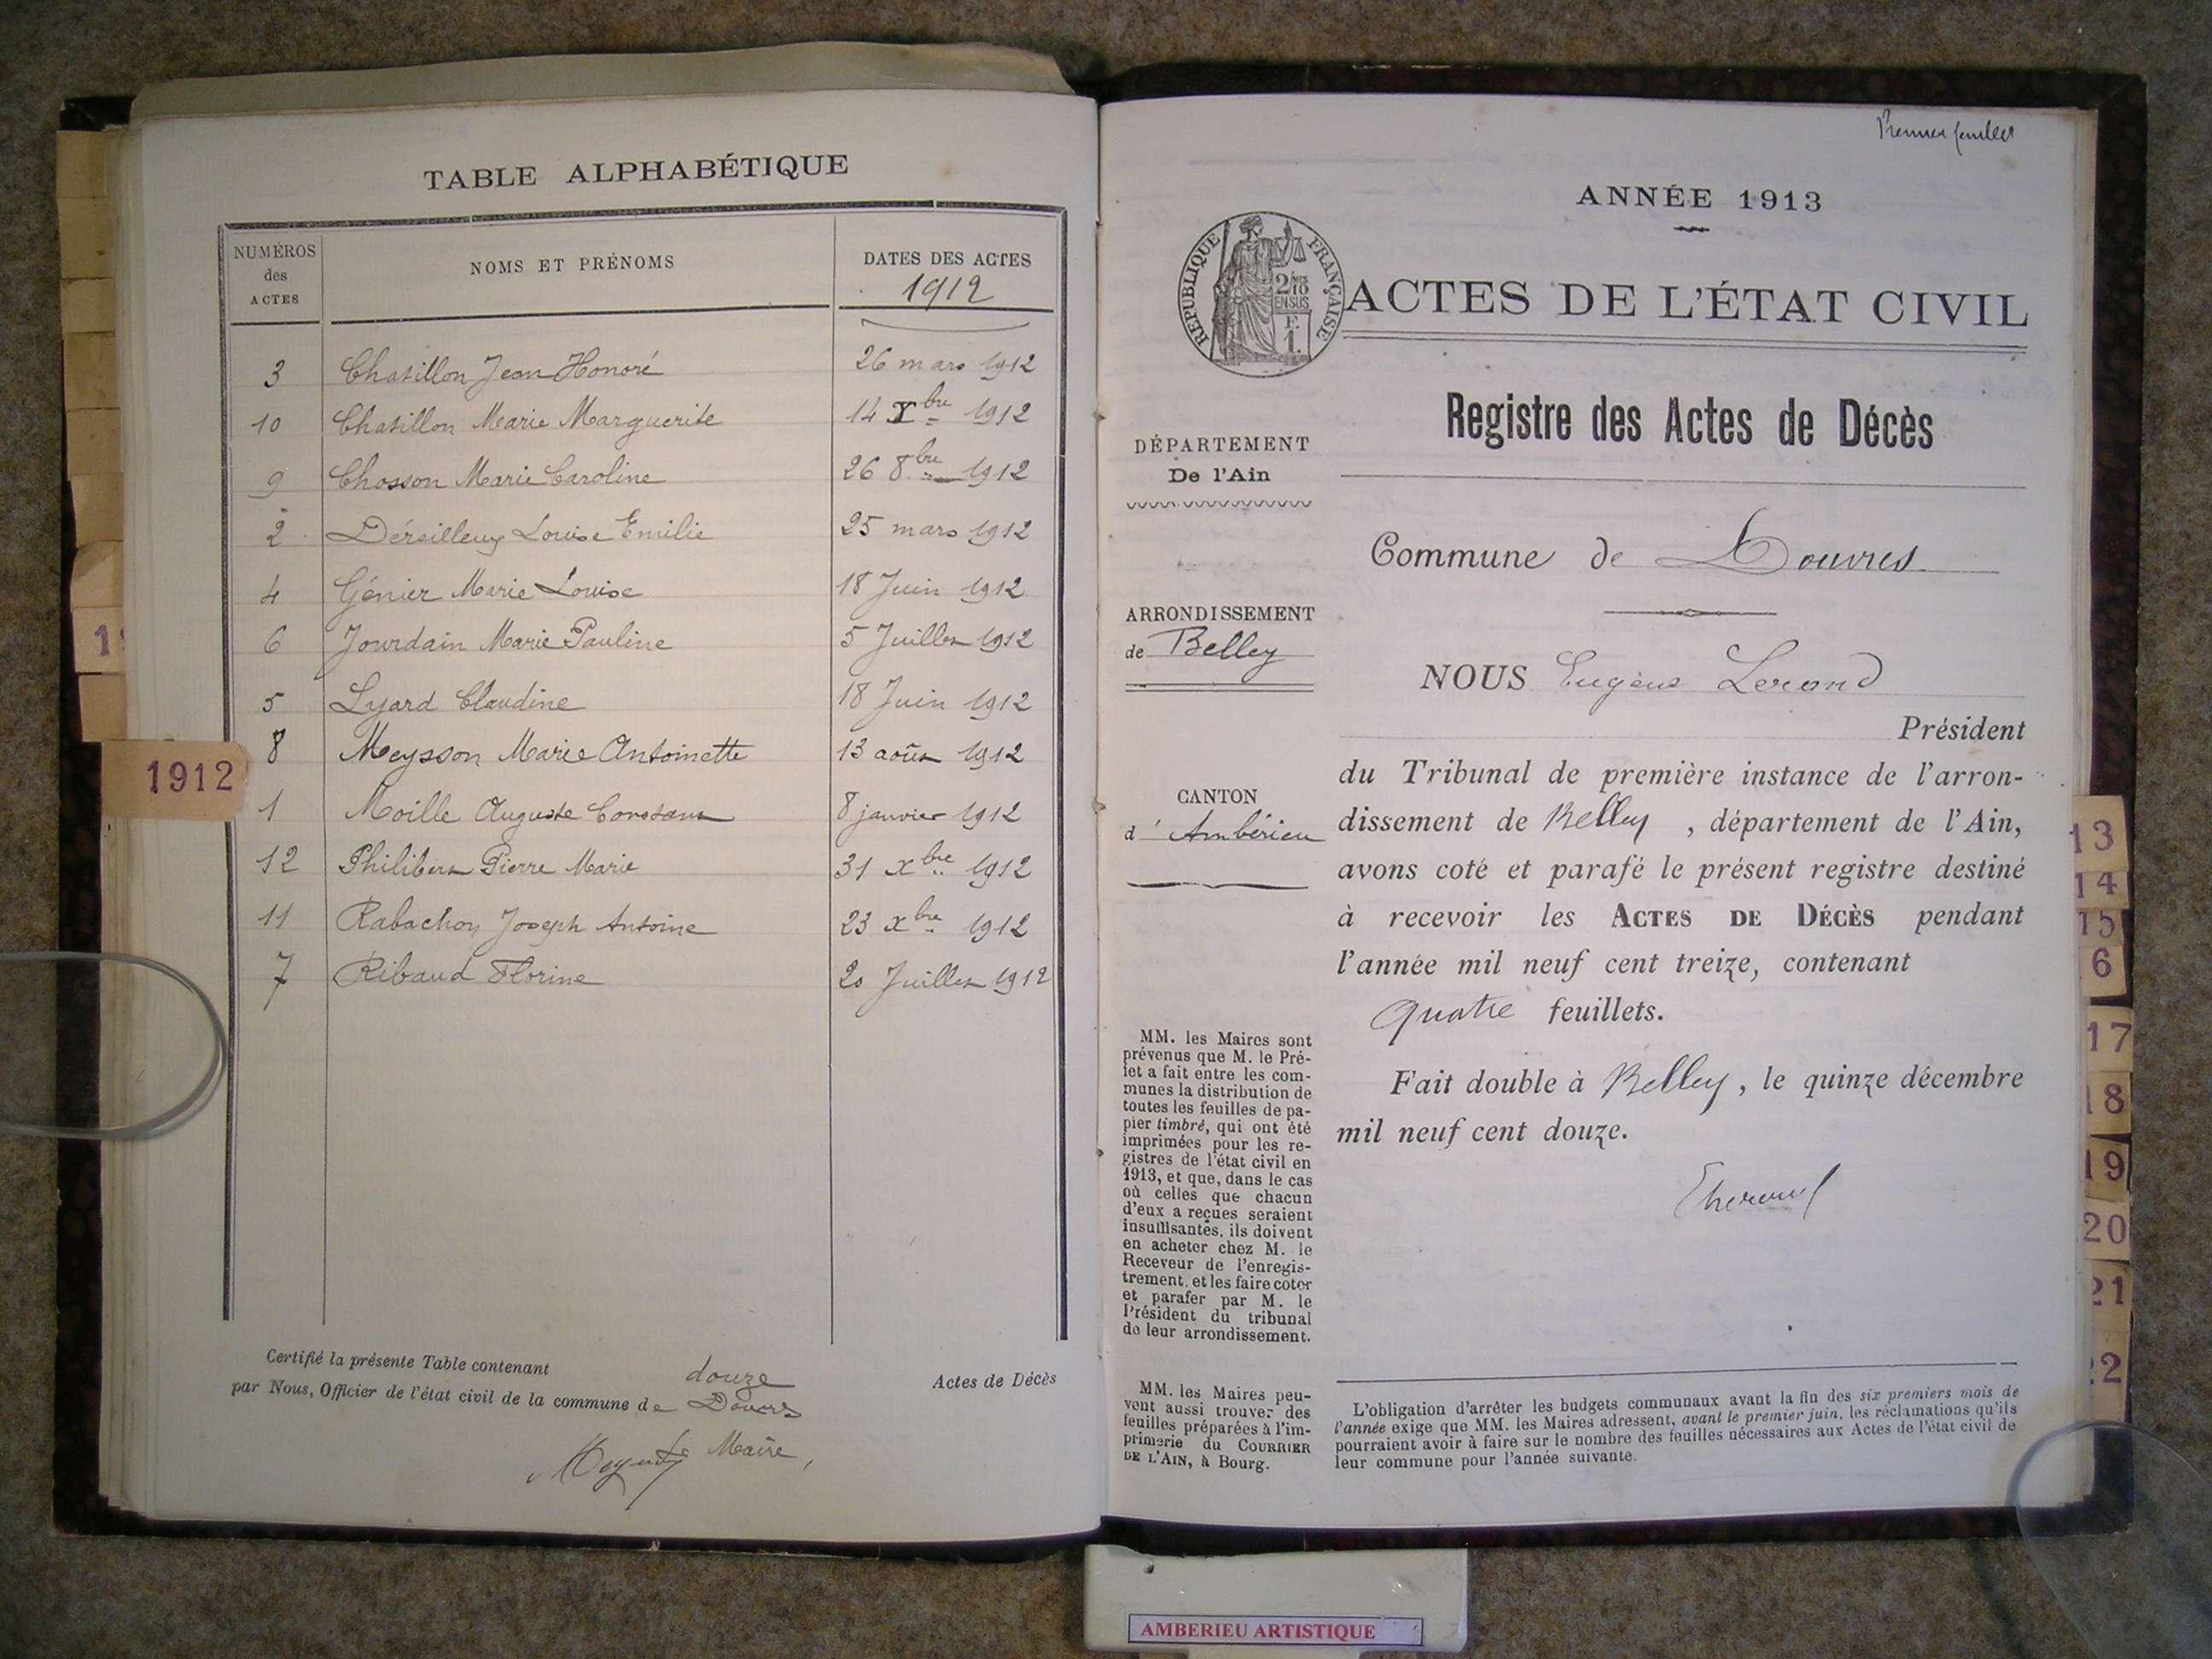 TABLE ALPHABÉTIQUE
NUMÉROS des ACTES
NOMS ET PRÉNOMS
DATES DES ACTES
1912
3 Chatillon Jean Honoré 26 mars 1912
10 Chatillon Marie Marguerite 14 Xbre 1912
9 Chosson Marie Caroline 26 8bre 1912
2 Louise Emilie 25 mars 1912
4 Génier Marie Louise 18 Juin 1912
6 Jourdain Marie Pauline 5 Juillet 1912
5 Lyard Claudine 18 Juin 1912
8 Meysson Marie Antoinette 13 août 1912
1 Moille Auguste Constant 8 janvier 1912
12 Philibert Pierre Marie 31 xbre 1912
11 Rabachon Joseph Antoine 23 xbre 1912
7 Ribaud Florine 20 Juillet 1912
Certifié la présente Table contenant douze Actes de Décès
par Nous, Officier de l'état civil de la commune de Douvres
Le Maire,
1912
Premier feuillet
ANNÉE 1913
RÉPUBLIQUE FRANÇAISE
2/10 EN SUS
F. 1.
ACTES DE L'ÉTAT CIVIL
Registre des Actes de Décès
DÉPARTEMENT
De l'Ain
ARRONDISSEMENT
de Belley
CANTON
d' Ambérieu
MM. les Maires sont
prévenus que M. le Pré-
fet a fait entre les com-
munes la distribution de
toutes les feuilles de pa-
pier timbré, qui ont été
imprimées pour les re-
gistres de l'état civil en
1913, et que, dans le cas
où celles que chacun
d'eux a reçues seraient
insuffisantes, ils doivent
en acheter chez M. le
Receveur de l'enregis-
trement, et les faire coter
et parafer par M. le
Président du tribunal
de leur arrondissement.
MM. les Maires peu-
vent aussi trouver des
feuilles préparées à l'im-
primerie du COURRIER
DE L'AIN, à Bourg.
Commune de Douvres
NOUS Eugène
Président
du Tribunal de première instance de l'arron-
dissement de Belley, département de l'Ain,
avons coté et parafé le présent registre destiné
à recevoir les ACTES DE DÉCÈS pendant
l'année mil neuf cent treize, contenant
quatre feuillets.
Fait double à Belley, le quinze décembre
mil neuf cent douze.
L'obligation d'arrêter les budgets communaux avant la fin des six premiers mois de
l'année exige que MM. les Maires adressent, avant le premier juin, les réclamations qu'ils
pourraient avoir à faire sur le nombre des feuilles nécessaires aux Actes de l'état civil de
leur commune pour l'année suivante.
13
14
15
6
17
18
19
20
21
22
AMBERIEU ARTISTIQUE